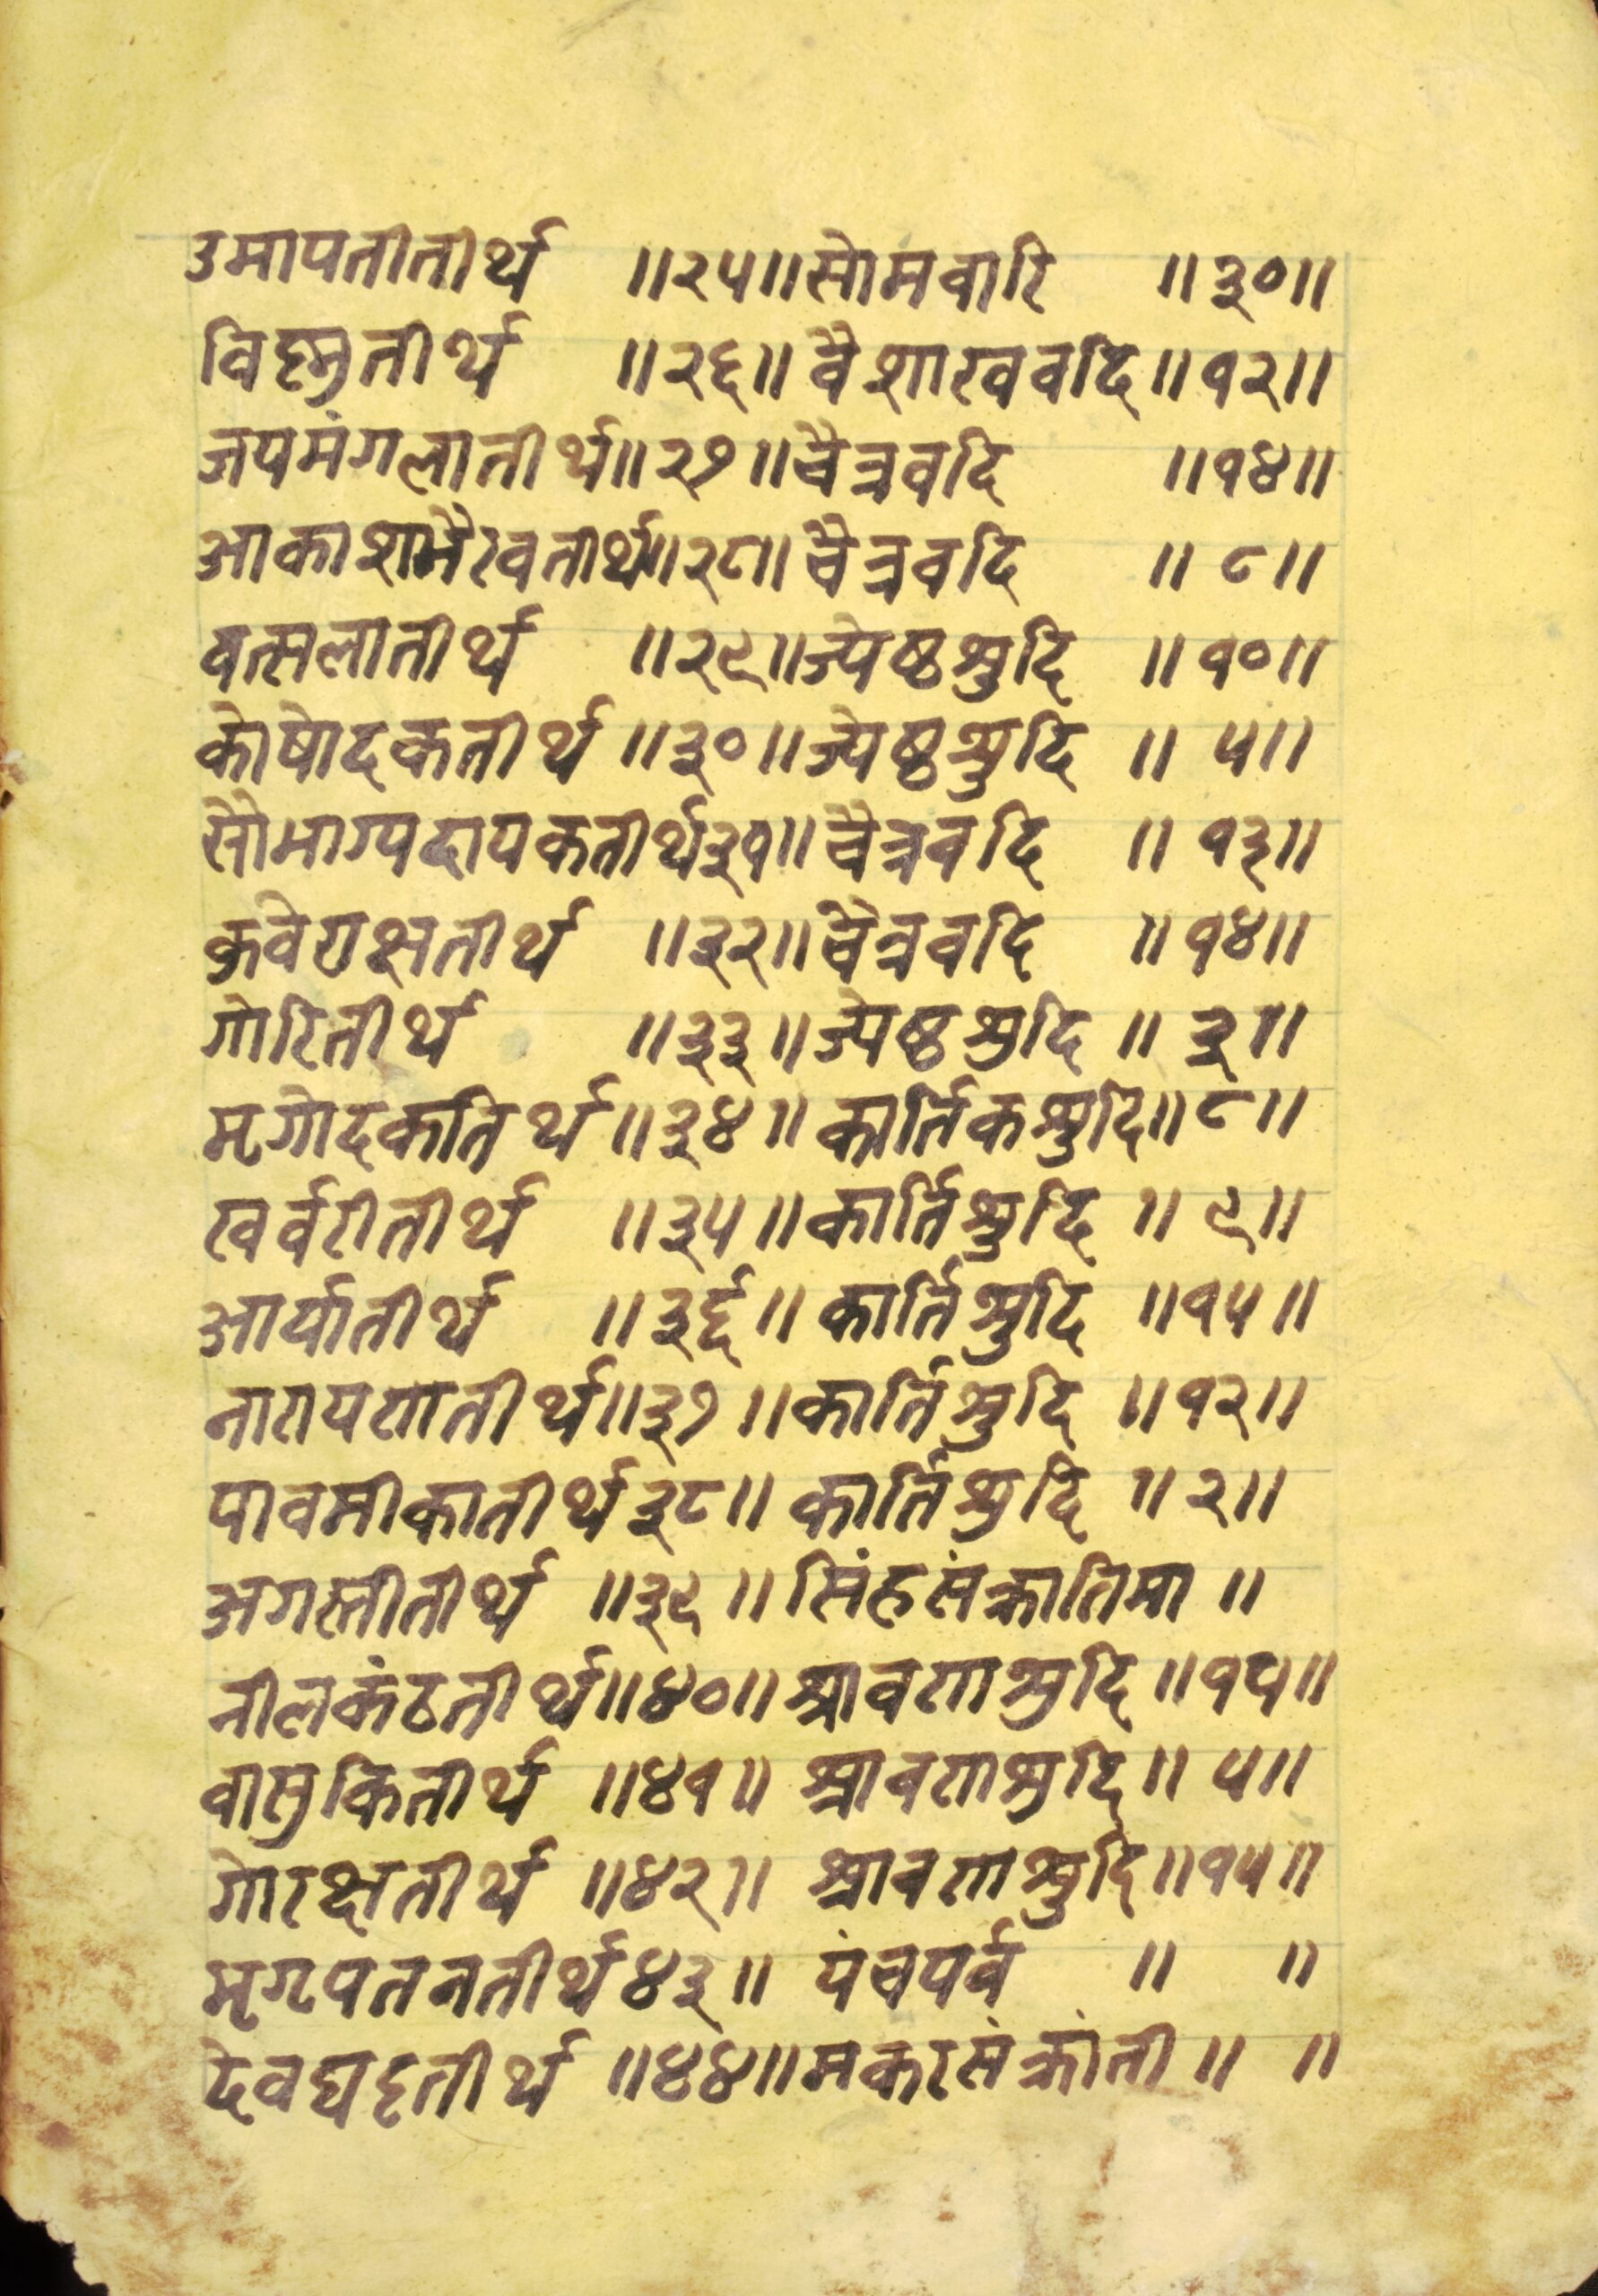 उमापतीतीर्थ ॥२५॥ सोमवारि ॥३०॥
विष्नुतीर्थ ॥२६॥ वैशाखवदि ॥१२॥
जयमंगलातीर्थ ॥२७॥ चैत्रवदि ॥१४॥
आकाशभैरवतीर्थ ॥२८॥ चैत्रवदि ॥८॥
वत्सलातीर्थ ॥२९॥ ज्येष्ठश्रुदि ॥१०॥
कोषोदकतीर्थ ॥३०॥ ज्येष्ठश्रुदि ॥५॥
सौभाग्यदायकतीर्थ ३१॥ चैत्रवदि ॥१३॥
कुवेराक्षतीर्थ ॥३२॥ चैत्रवदि ॥१४॥
गोरितीर्थ ॥३३॥ ज्येष्ठश्रुदि ॥३॥
मृगोदकतिर्थ ॥३४॥ कार्तिकश्रुदि ॥८॥
खर्वरीतीर्थ ॥३५॥ कार्तिश्रुदि ॥९॥
आर्यातीर्थ ॥३६॥ कार्तिश्रुदि ॥१५॥
नारायणतीर्थ ॥३७॥ कार्तिश्रुदि ॥१२॥
पावमीकातीर्थ ३८॥ कार्तिश्रुदि ॥२॥
अगस्तीतीर्थ ॥३९॥ सिंहसंक्रातिमा ॥
नीलकंठतीर्थ ॥४०॥ श्रावणश्रुदि ॥१५॥
वासुकितीर्थ ॥४१॥ श्रावणश्रुदि ॥५॥
गोरक्षतीर्थ ॥४२॥ श्रावणश्रुदि ॥१५॥
मृगपतनतीर्थ ४३॥ पंचपर्व ॥ ॥
देवघट्टतीर्थ ॥४४॥ मकरसंक्रांती ॥ ॥